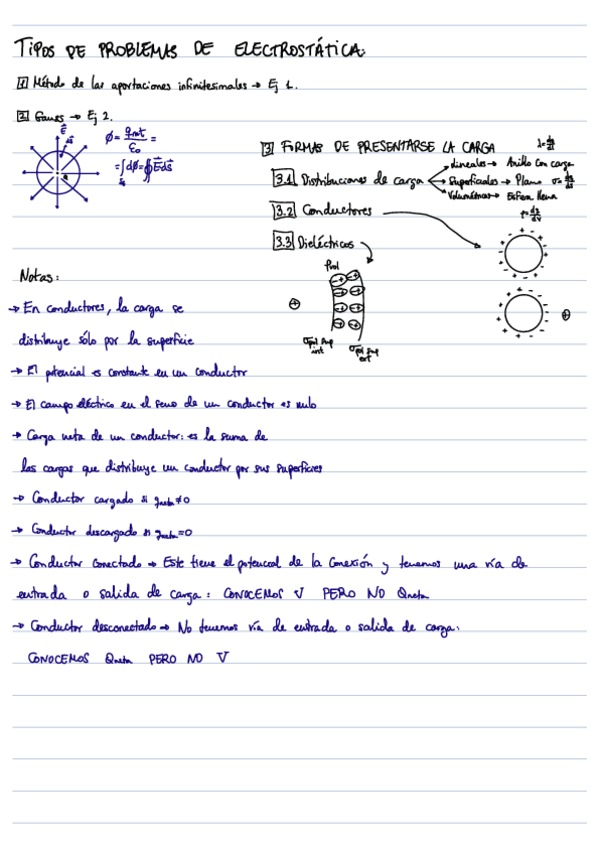 TIPOS DE PROBLEMAS DE ELECTROSTÁTICA:
1 Método de las aportaciones infinitesimales → Ej 1.
2 Gauss → Ej 2.
E
ds
ϕ = qint/ε0 =
= ∫dϕ = ∮E ds
3 FORMAS DE PRESENTARSE LA CARGA
3.1 Distribuciones de carga
Lineales → Anillo con carga
Superficiales → Plano
Volumétricas → Esfera llena
3.2 Conductores
3.3 Dieléctricos
Pol
σpol sup int
σpol sup ext
Notas:
→ En conductores, la carga se
distribuye sólo por la superficie
→ El potencial es constante en un conductor
→ El campo eléctrico en el seno de un conductor es nulo
→ Carga neta de un conductor: es la suma de
las cargas que distribuye un conductor por sus superficies
→ Conductor cargado si qneta ≠ 0
→ Conductor descargado si qneta = 0
→ Conductor conectado → Este tiene el potencial de la conexión y tenemos una vía de
entrada o salida de carga: CONOCEMOS V PERO NO Qneta
→ Conductor desconectado → No tenemos vía de entrada o salida de carga:
CONOCEMOS Qneta PERO NO V